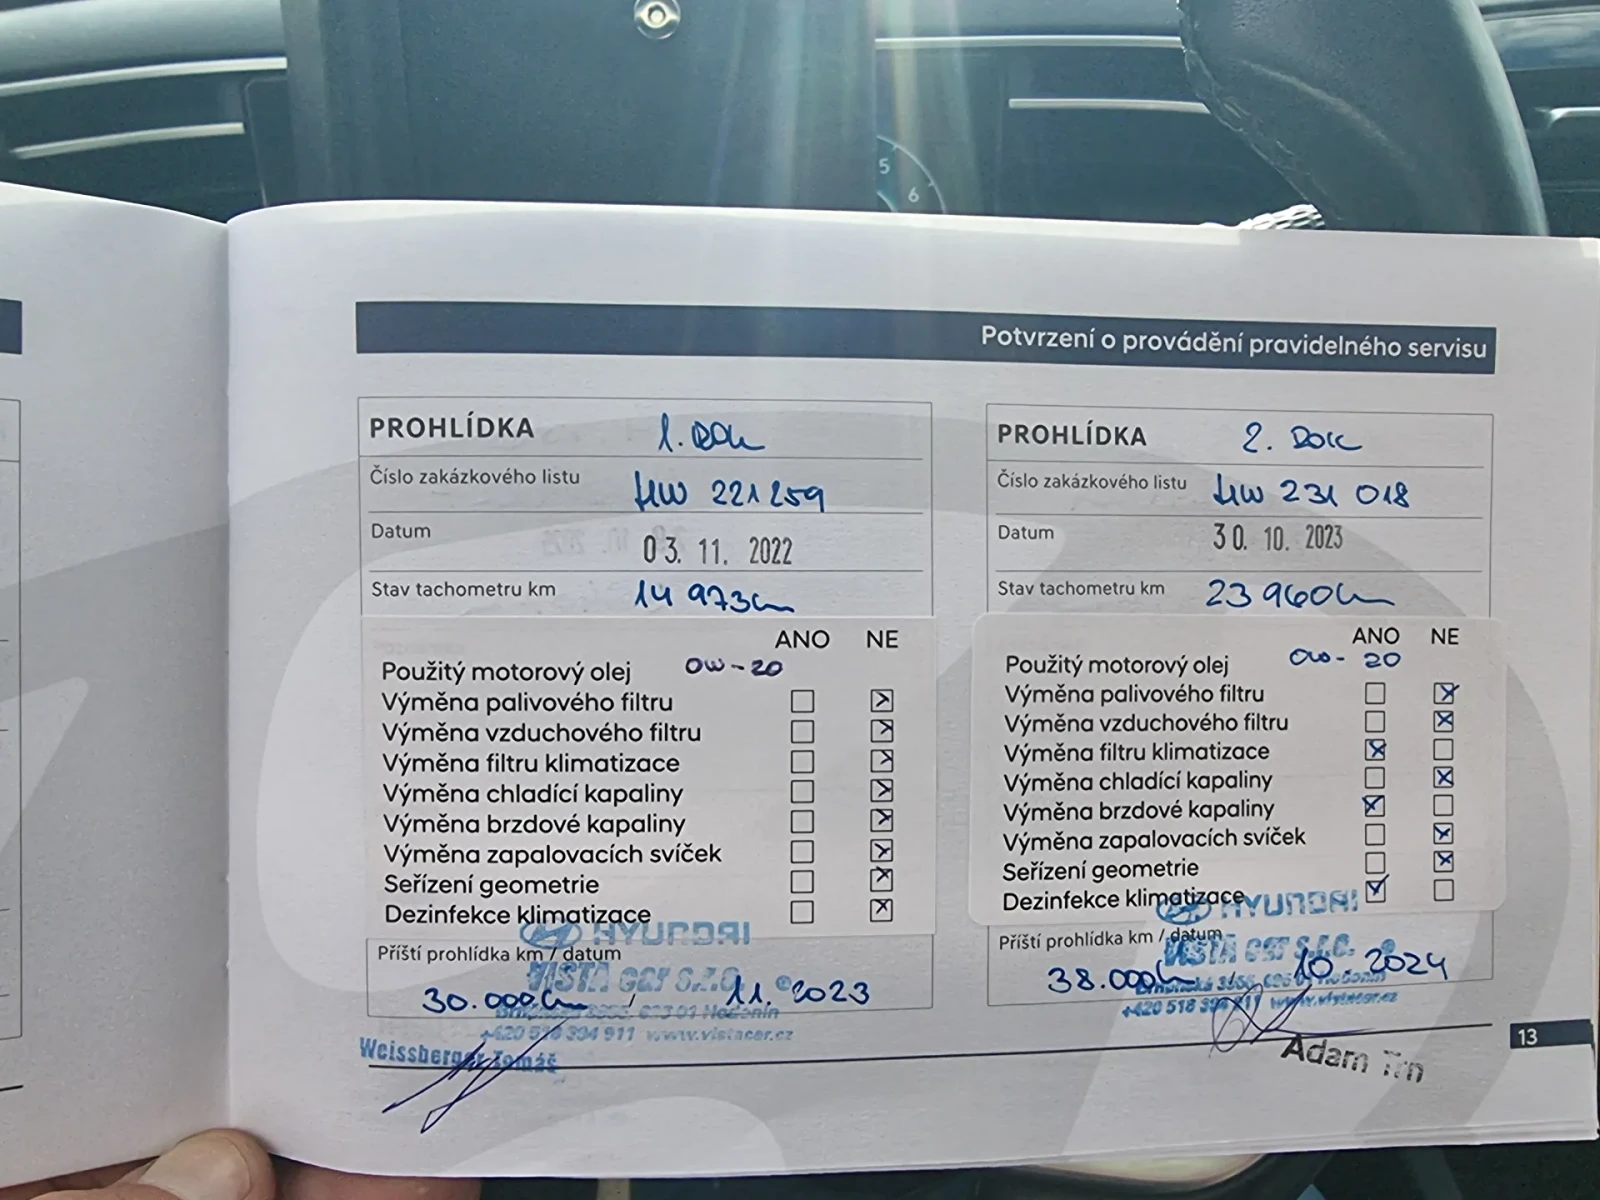 5
6
Potvrzení o provádění pravidelného servisu
PROHLÍDKA 1. ROK
Číslo zakázkového listu HW 221259
Datum 03. 11. 2022
Stav tachometru km 14 973km
ANO NE
Použitý motorový olej 0W-20
Výměna palivového filtru
Výměna vzduchového filtru
Výměna filtru klimatizace
Výměna chladící kapaliny
Výměna brzdové kapaliny
Výměna zapalovacích svíček
Seřízení geometrie
Dezinfekce klimatizace
HYUNDAI
Příští prohlídka km / datum
VISTA car s.r.o.
30.000km / 11. 2023
695 01 Hodonín
+420 518 394 911 www.vistacar.cz
Weissberger Tomáš
PROHLÍDKA 2. ROK
Číslo zakázkového listu HW 231 018
Datum 30. 10. 2023
Stav tachometru km 23 960km
ANO NE
Použitý motorový olej 0W-20
Výměna palivového filtru
Výměna vzduchového filtru
Výměna filtru klimatizace
Výměna chladící kapaliny
Výměna brzdové kapaliny
Výměna zapalovacích svíček
Seřízení geometrie
Dezinfekce klimatizace
HYUNDAI
Příští prohlídka km / datum
VISTA car s.r.o.
38.000km 10. 2024
+420 518 394 911 www.vistacar.cz
Adam Trn
13